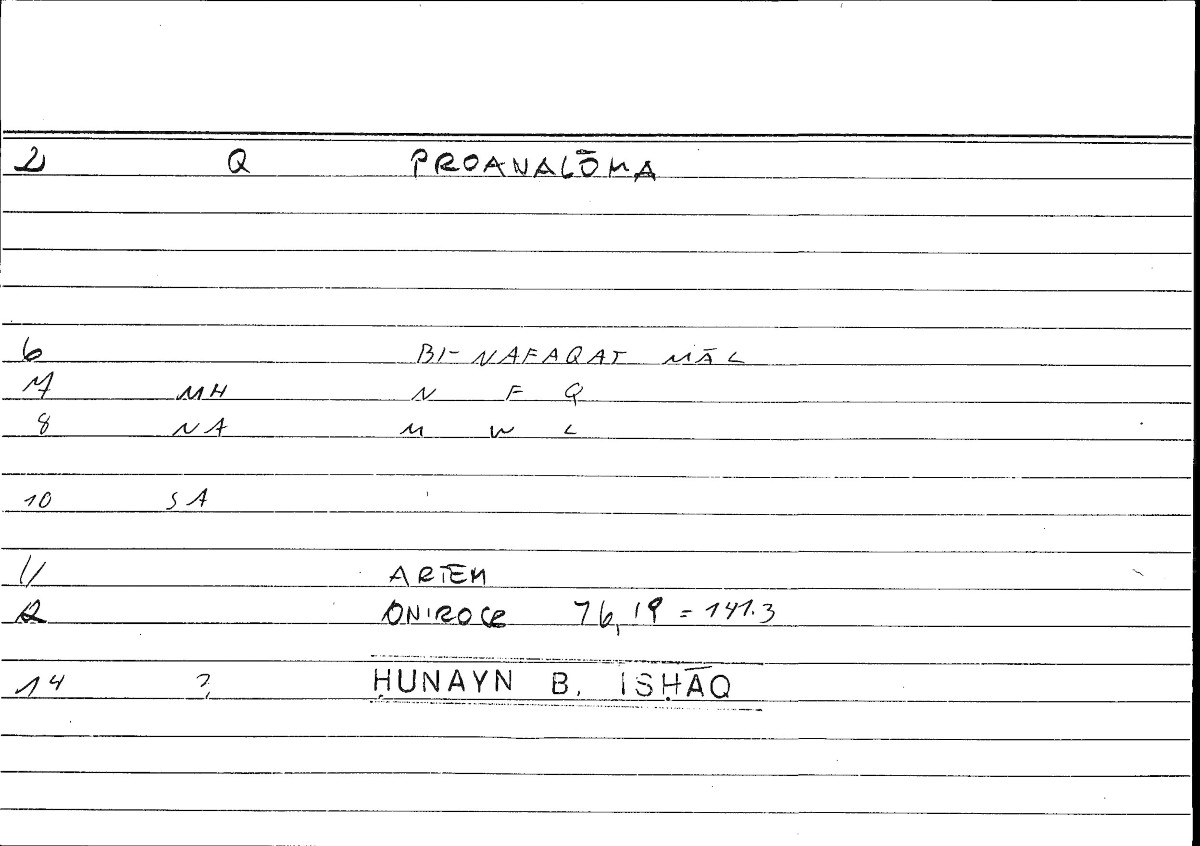 2 Q PROANALŌMA
6 BI-NAFAQAT MĀL
7 MH N F Q
8 NA M W L
10 SA
11 ARTEM
12 ONIROCR 76,19 = 141.3
14 ? ḤUNAYN B. ISḤĀQ